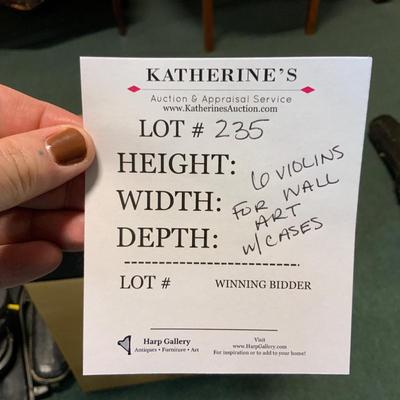 KATHERINE'S
Auction & Appraisal Service
www.KatherinesAuction.com
LOT # 235
HEIGHT:
WIDTH:
DEPTH:
6 VIOLINS
FOR WALL
ART
W/ CASES
LOT #
WINNING BIDDER
Harp Gallery
Antiques • Furniture • Art
Visit
www.HarpGallery.com
For inspiration or to add to your home!